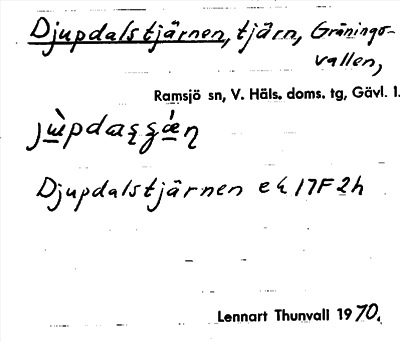 Djupdalstjärnen, tjärn, Gröningsvallen,
Ramsjö sn, V. Häls. doms. tg, Gävl. l.
Djupdalstjärnen ek 17F2h
Lennart Thunvall 1970.